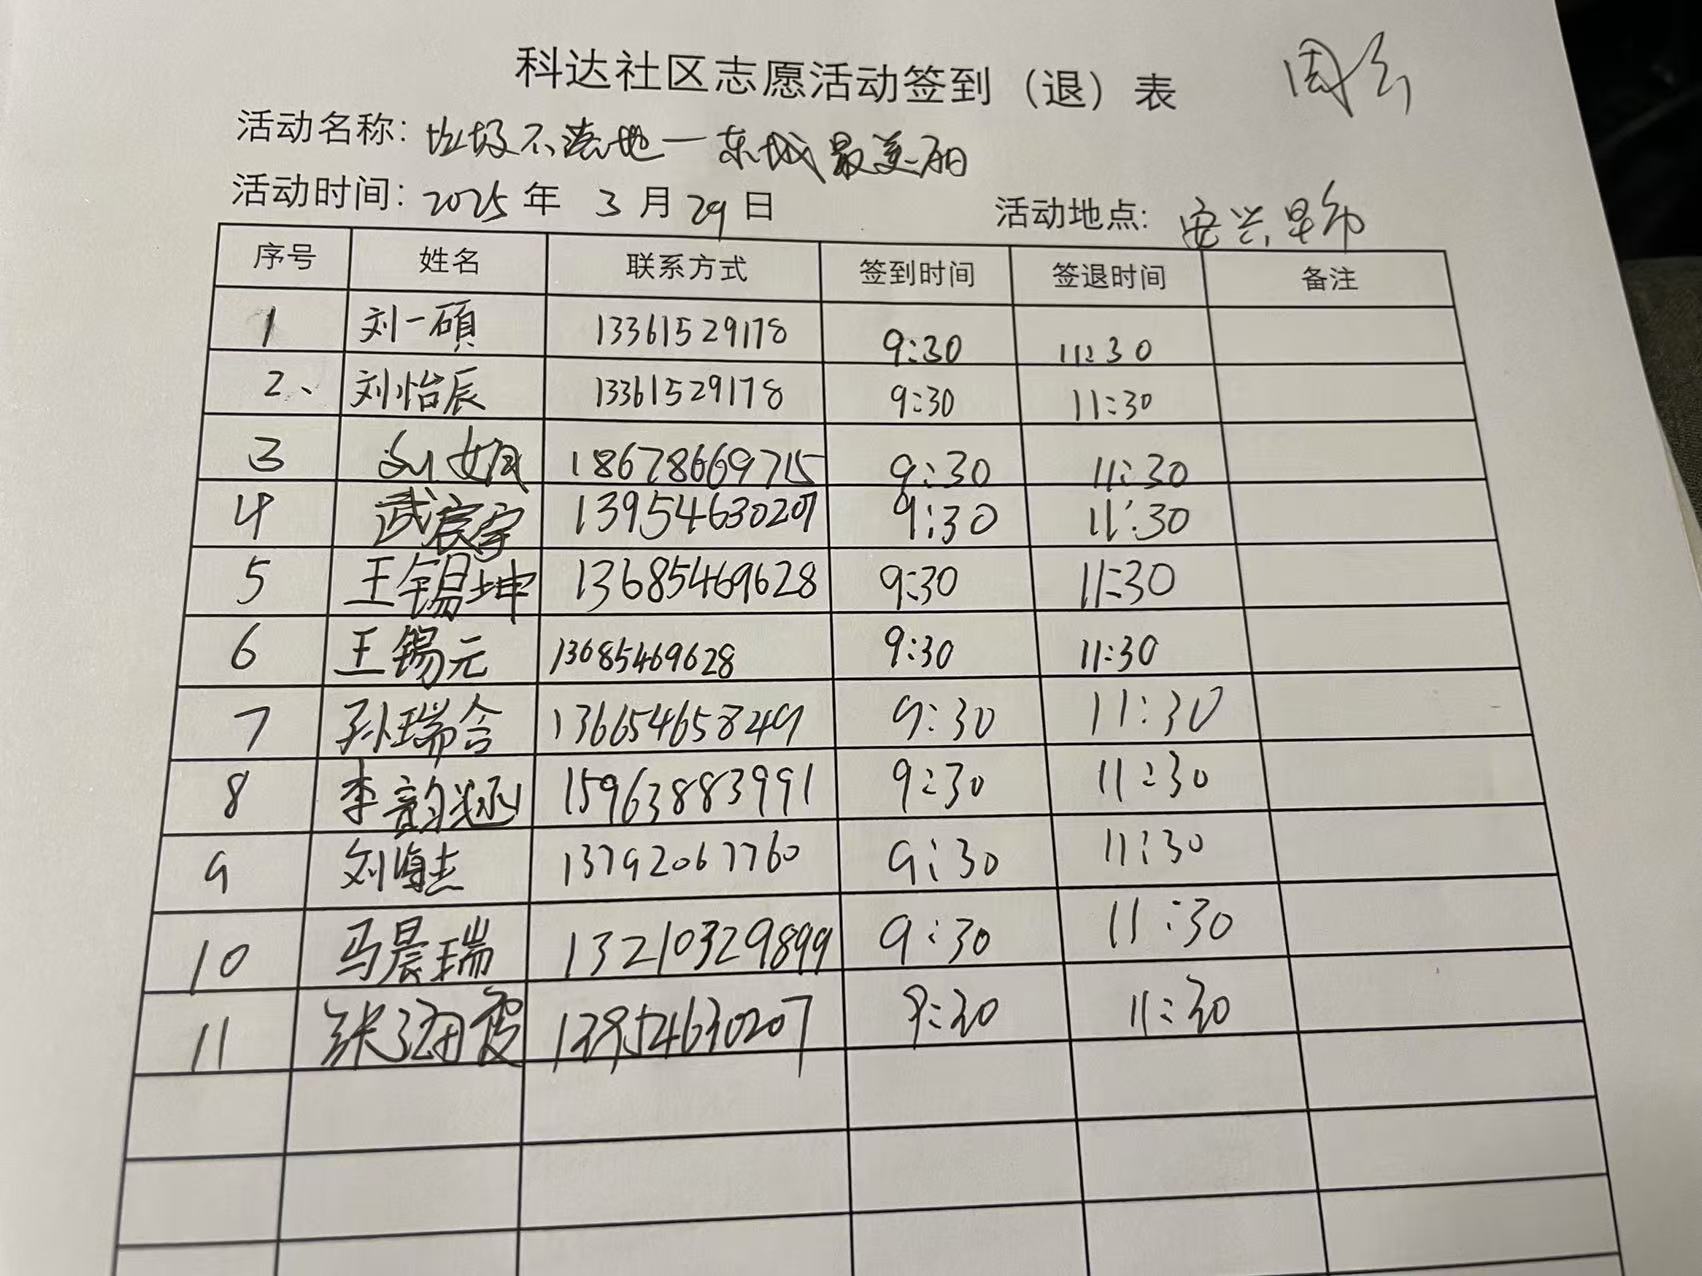 科达社区志愿活动签到（退）表 周
活动名称：垃圾不落地一东城最美丽
活动时间：2025年 3月29日 活动地点：安兴早市
序号 姓名 联系方式 签到时间 签退时间 备注
1 刘一硕 13361529178 9:30 11:30
2、 刘怡辰 13361529178 9:30 11:30
3 刘 18678669715 9:30 11:30
4 武宸宇 13954630207 9:30 11:30
5 王锡坤 13685469628 9:30 11:30
6 王锡元 13685469628 9:30 11:30
7 孙瑞含 13665465849 9:30 11:30
8 李韵涵 15963883991 9:30 11:30
9 刘 13792067760 9:30 11:30
10 马晨瑞 13210329899 9:30 11:30
11 张 13954630207 9:30 11:30